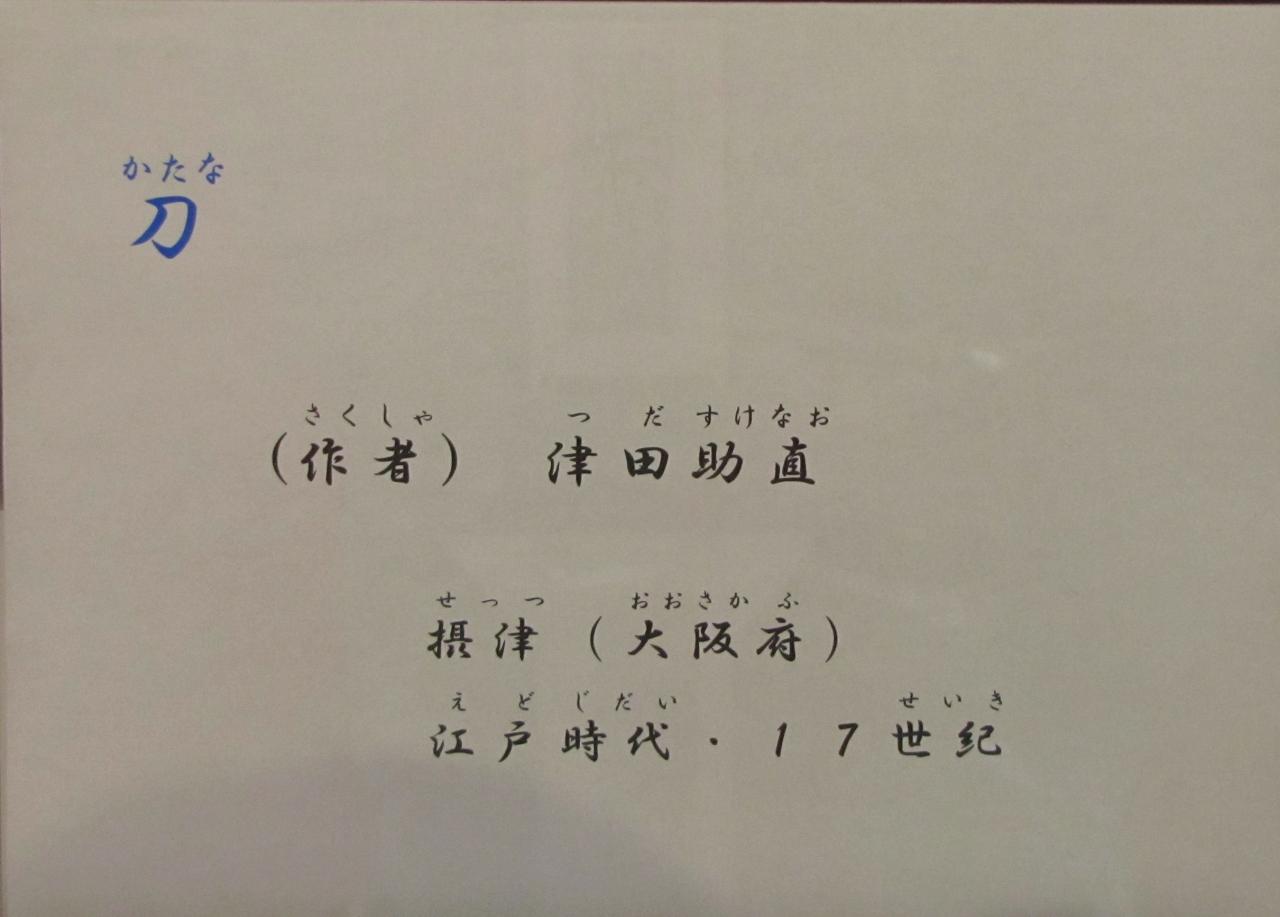 かたな
刀
さくしゃ つだすけなお
（作者） 津田助直
せっつ おおさかふ
摂津（大阪府）
えどじだい せいき
江戸時代・１７世紀